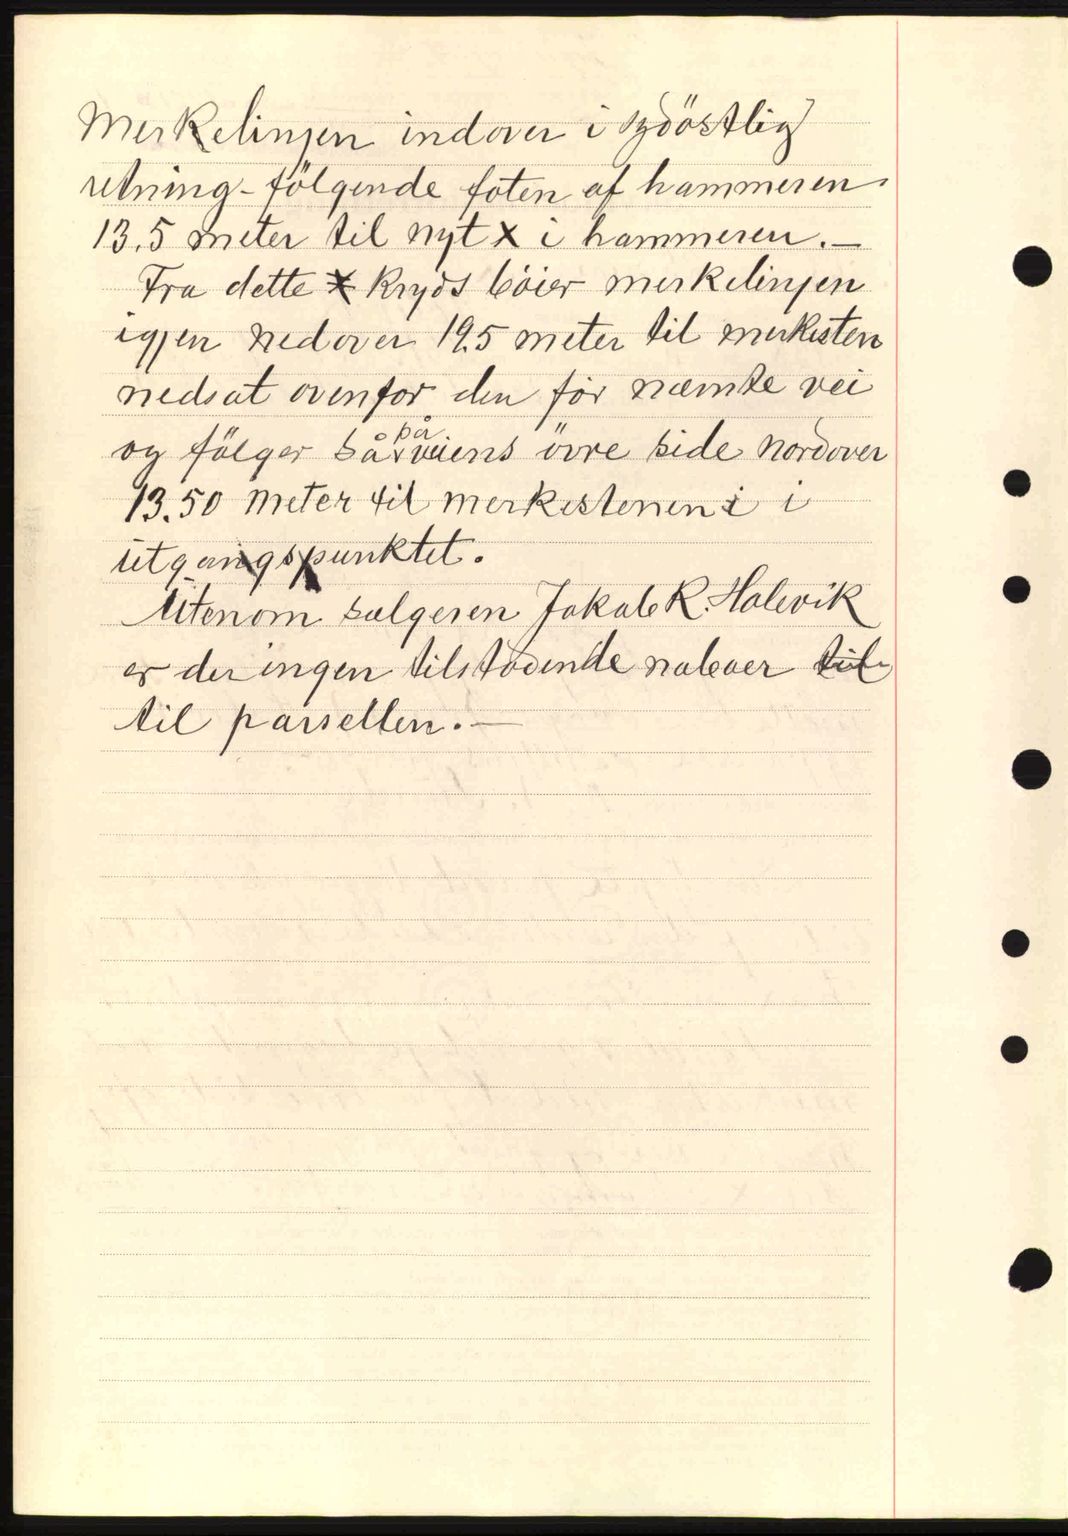 Merkelinjen indover i sydöstlig
retning - fölgende foten af hammeren
13.5 meter til nyt x i hammeren. —
Fra dette x kryds böier merkelinjen
igjen nedover 19.5 meter til merkesten
nedsat ovenfor den för nævnte vei
og fölger så på veiens övre side nordover
13.50 meter til merkestenen i i
utgangspunktet.
Utenom sælgeren Jakob R. Halevik
er der ingen tilstödende naboer til
til parsellen. —